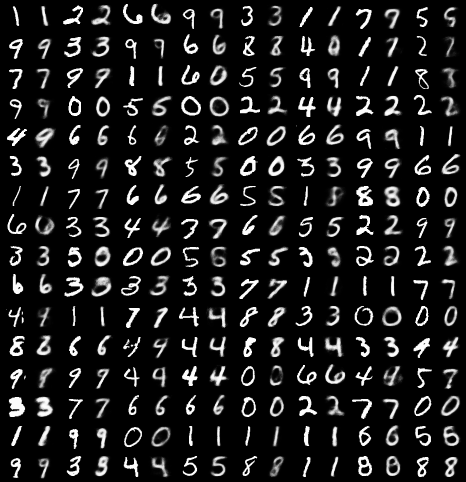 1 1 2 2 6 6 9 9 3 3 1 1 7 9 5 5
9 9 3 3 9 9 6 6 8 8 4 0 1 1 2 2
7 7 9 9 1 1 6 0 5 5 9 9 1 1 8
9 9 0 0 5 5 0 0 2 2 4 4 2 2 2 2
4 9 6 6 6 6 2 2 0 0 6 6 9 9 1 1
3 3 9 9 8 8 5 5 0 0 3 3 9 9 6 6
1 1 7 7 6 6 6 6 5 5 1 8 8 8 0 0
6 0 3 3 4 4 3 7 6 6 5 5 2 2 9 9
3 3 5 0 0 0 5 6 5 5 3 9 2 2 2 2
6 6 3 3 3 3 3 3 7 7 1 1 1 1 7 7
4 9 1 1 7 7 4 4 8 8 3 3 0 0 0 0
8 8 6 6 4 9 4 4 8 8 4 4 3 3 4 4
9 9 9 9 4 9 4 4 0 0 6 6 4 9 5 7
3 3 7 7 6 6 6 6 0 0 2 2 7 7 0 0
1 1 9 9 0 0 1 1 1 1 1 1 6 6 5 5
9 9 3 3 4 4 5 5 8 8 1 1 8 8 8 8